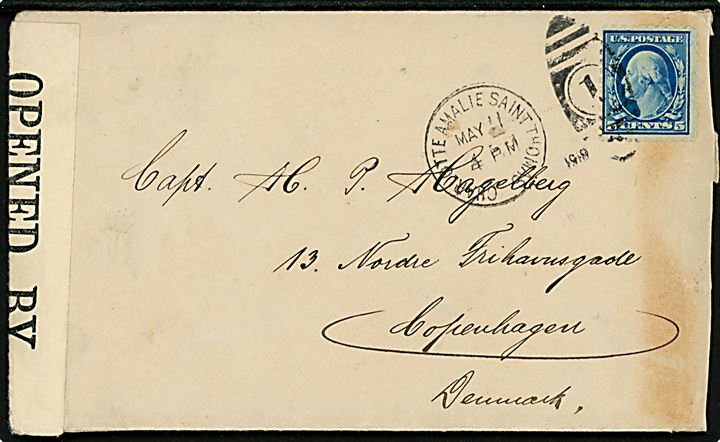 OPENED BY
U.S. POSTAGE
CENTS 5
CHARLOTTE AMALIE SAINT THOMAS
MAY 11
4 PM
1918
1
Capt. H. P. Hagelberg
13. Nordre Frihavnsgade
Copenhagen
Denmark,